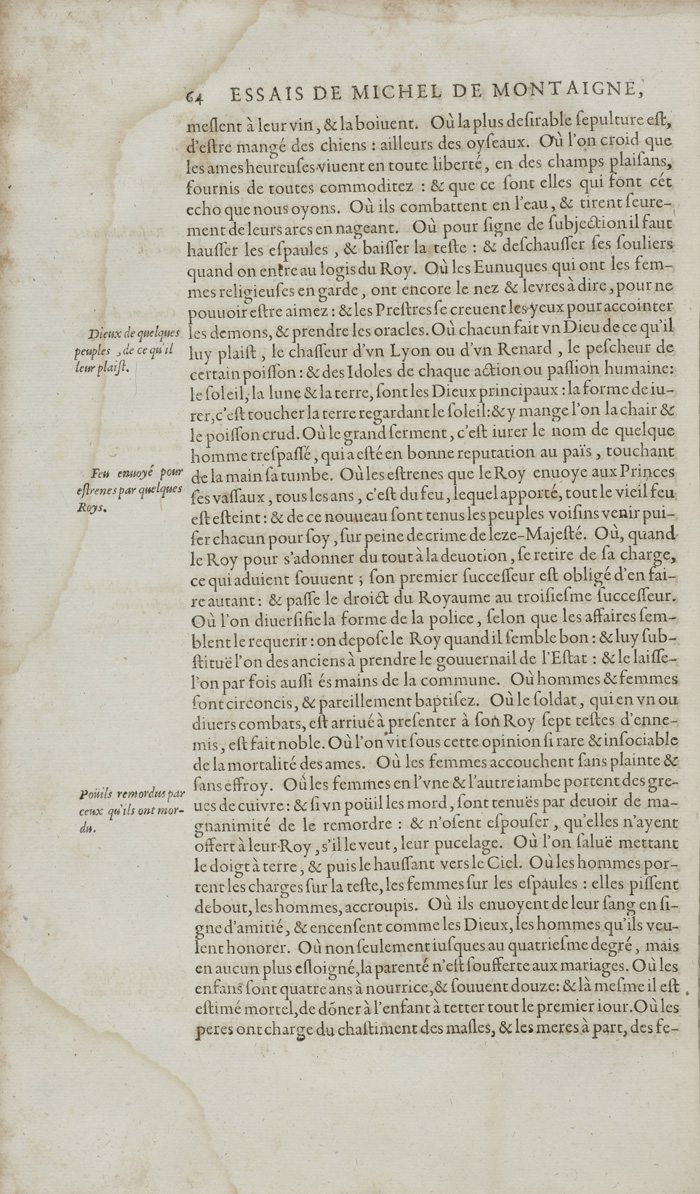 64 ESSAIS DE MICHEL DE MONTAIGNE,
meſlent à leur vin, & la boiuent. Où la plus deſirable ſepulture eſt,
d'eſtre mangé des chiens : ailleurs des oyſeaux. Où l'on croid que
les ames heureuſes viuent en toute liberté, en des champs plaiſans,
fournis de toutes commoditez : & que ce ſont elles qui font cét
echo que nous oyons. Où ils combattent en l'eau, & tirent ſeure-
ment de leurs arcs en nageant. Où pour ſigne de ſubjection il faut
hauſſer les eſpaules, & baiſſer la teſte : & deſchauſſer ſes ſouliers
quand on entre au logis du Roy. Où les Eunuques qui ont les fem-
mes religieuſes en garde, ont encore le nez & levres à dire, pour ne
pouuoir eſtre aimez : & les Preſtres ſe creuent les yeux pour accointer
les demons, & prendre les oracles. Où chacun fait vn Dieu de ce qu'il
luy plaiſt, le chaſſeur d'vn Lyon ou d'vn Renard, le peſcheur de
certain poiſſon : & des Idoles de chaque action ou paſſion humaine:
le ſoleil, la lune & la terre, ſont les Dieux principaux : la forme de iu-
rer, c'eſt toucher la terre regardant le ſoleil: & y mange l'on la chair &
le poiſſon crud. Où le grand ſerment, c'eſt iurer le nom de quelque
homme treſpaſſé, qui a eſté en bonne reputation au païs, touchant
de la main ſa tumbe. Où les eſtrenes que le Roy enuoye aux Princes
ſes vaſſaux, tous les ans, c'eſt du feu, lequel apporté, tout le vieil feu
eſt eſteint : & de ce nouueau ſont tenus les peuples voiſins venir pui-
ſer chacun pour ſoy, ſur peine de crime de leze-Majeſté. Où, quand
le Roy pour s'adonner du tout à la deuotion, ſe retire de ſa charge,
ce qui aduient ſouuent ; ſon premier ſucceſſeur eſt obligé d'en fai-
re autant : & paſſe le droict du Royaume au troiſieſme ſucceſſeur.
Où l'on diuerſifie la forme de la police, ſelon que les affaires ſem-
blent le requerir : on depoſe le Roy quand il ſemble bon : & luy ſub-
ſtituë l'on des anciens à prendre le gouuernail de l'Eſtat : & le laiſſe-
l'on par fois auſſi és mains de la commune. Où hommes & femmes
ſont circoncis, & pareillement baptiſez. Où le ſoldat, qui en vn ou
diuers combats, eſt arriué à preſenter à ſon Roy ſept teſtes d'enne-
mis, eſt fait noble. Où l'on vit ſous cette opinion ſi rare & inſociable
de la mortalité des ames. Où les femmes accouchent ſans plainte &
ſans effroy. Où les femmes en l'vne & l'autre iambe portent des gre-
ues de cuivre : & ſi vn poüil les mord, ſont tenuës par deuoir de ma-
gnanimité de le remordre : & n'oſent eſpouſer, qu'elles n'ayent
offert à leur Roy, s'il le veut, leur pucelage. Où l'on ſaluë mettant
le doigt à terre, & puis le hauſſant vers le Ciel. Où les hommes por-
tent les charges ſur la teſte, les femmes ſur les eſpaules : elles piſſent
debout, les hommes, accroupis. Où ils enuoyent de leur ſang en ſi-
gne d'amitié, & encenſent comme les Dieux, les hommes qu'ils veu-
lent honorer. Où non ſeulement iuſques au quatrieſme degré, mais
en aucun plus eſloigné, la parenté n'eſt ſoufferte aux mariages. Où les
enfans ſont quatre ans à nourrice, & ſouuent douze: & là meſme il eſt
eſtimé mortel, de dōner à l'enfant à tetter tout le premier iour. Où les
peres ont charge du chaſtiment des maſles, & les meres à part, des fe-
Dieux de quelques
peuples, de ce qu'il
leur plaiſt.
Feu enuoyé pour
eſtrenes par quelques
Roys.
Poüils remordus par
ceux qu'ils ont mor-
du.